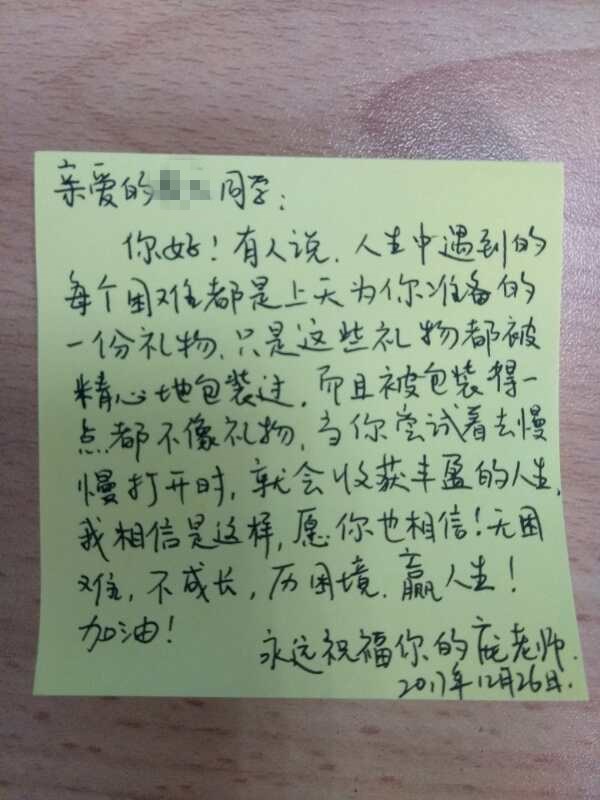 亲爱的同学：
你好！有人说，人生中遇到的
每个困难都是上天为你准备的
一份礼物，只是这些礼物都被
精心地包装过，而且被包装得一
点都不像礼物，当你尝试着去慢
慢打开时，就会收获丰盈的人生，
我相信是这样，愿你也相信！无困
难，不成长，历困境，赢人生！
加油！
永远祝福你的庞老师．
2017年12月26日．